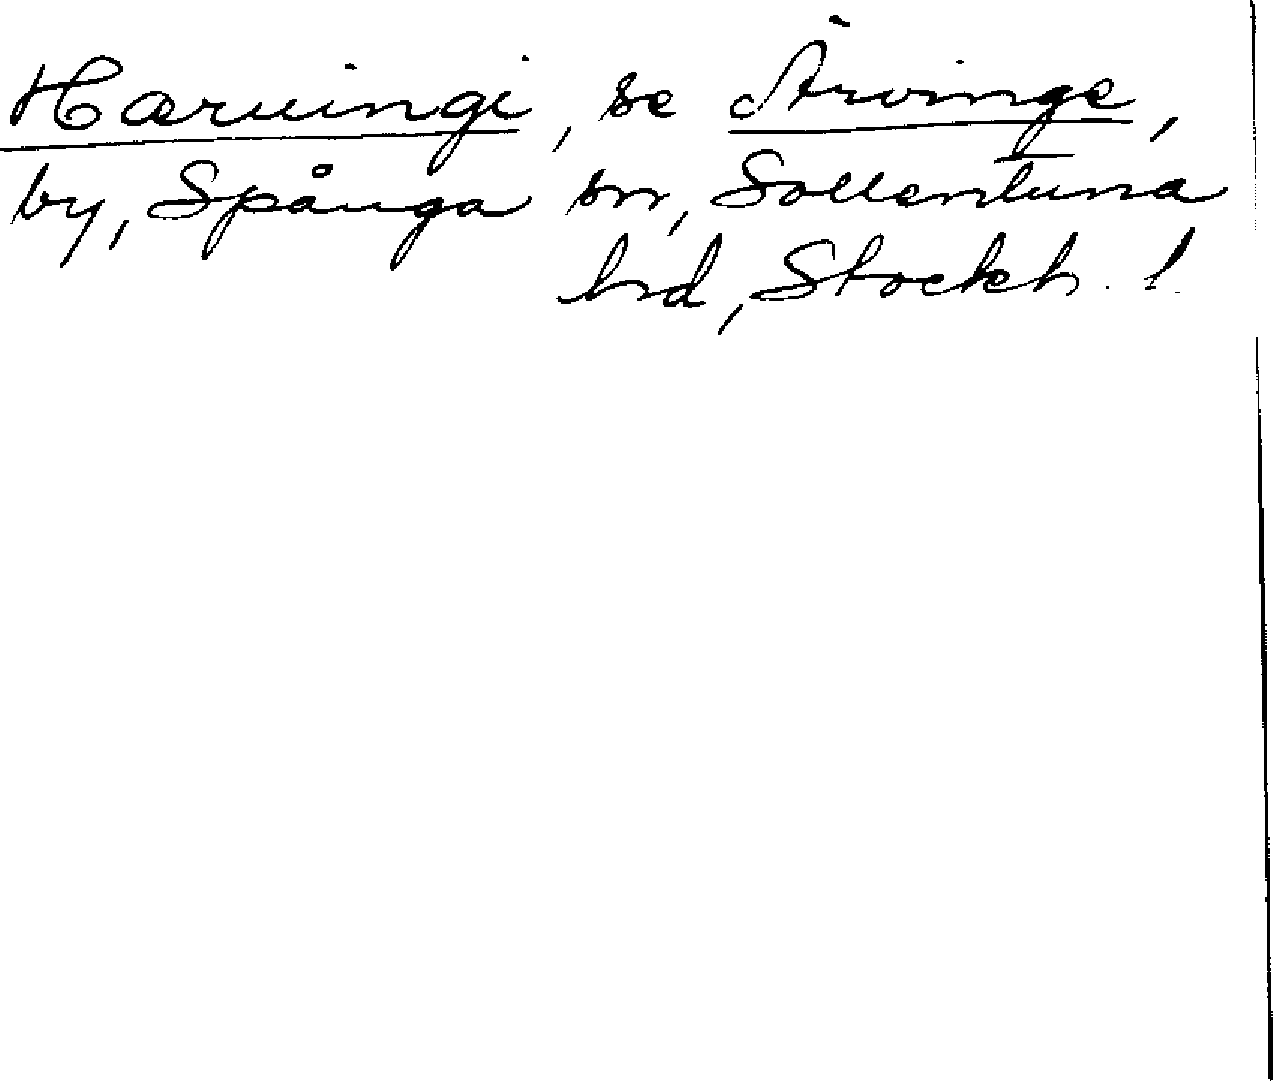 Hæruingi, se Ärvinge,
by, Spånga sn, Sollentuna
hd, Stockh. l.